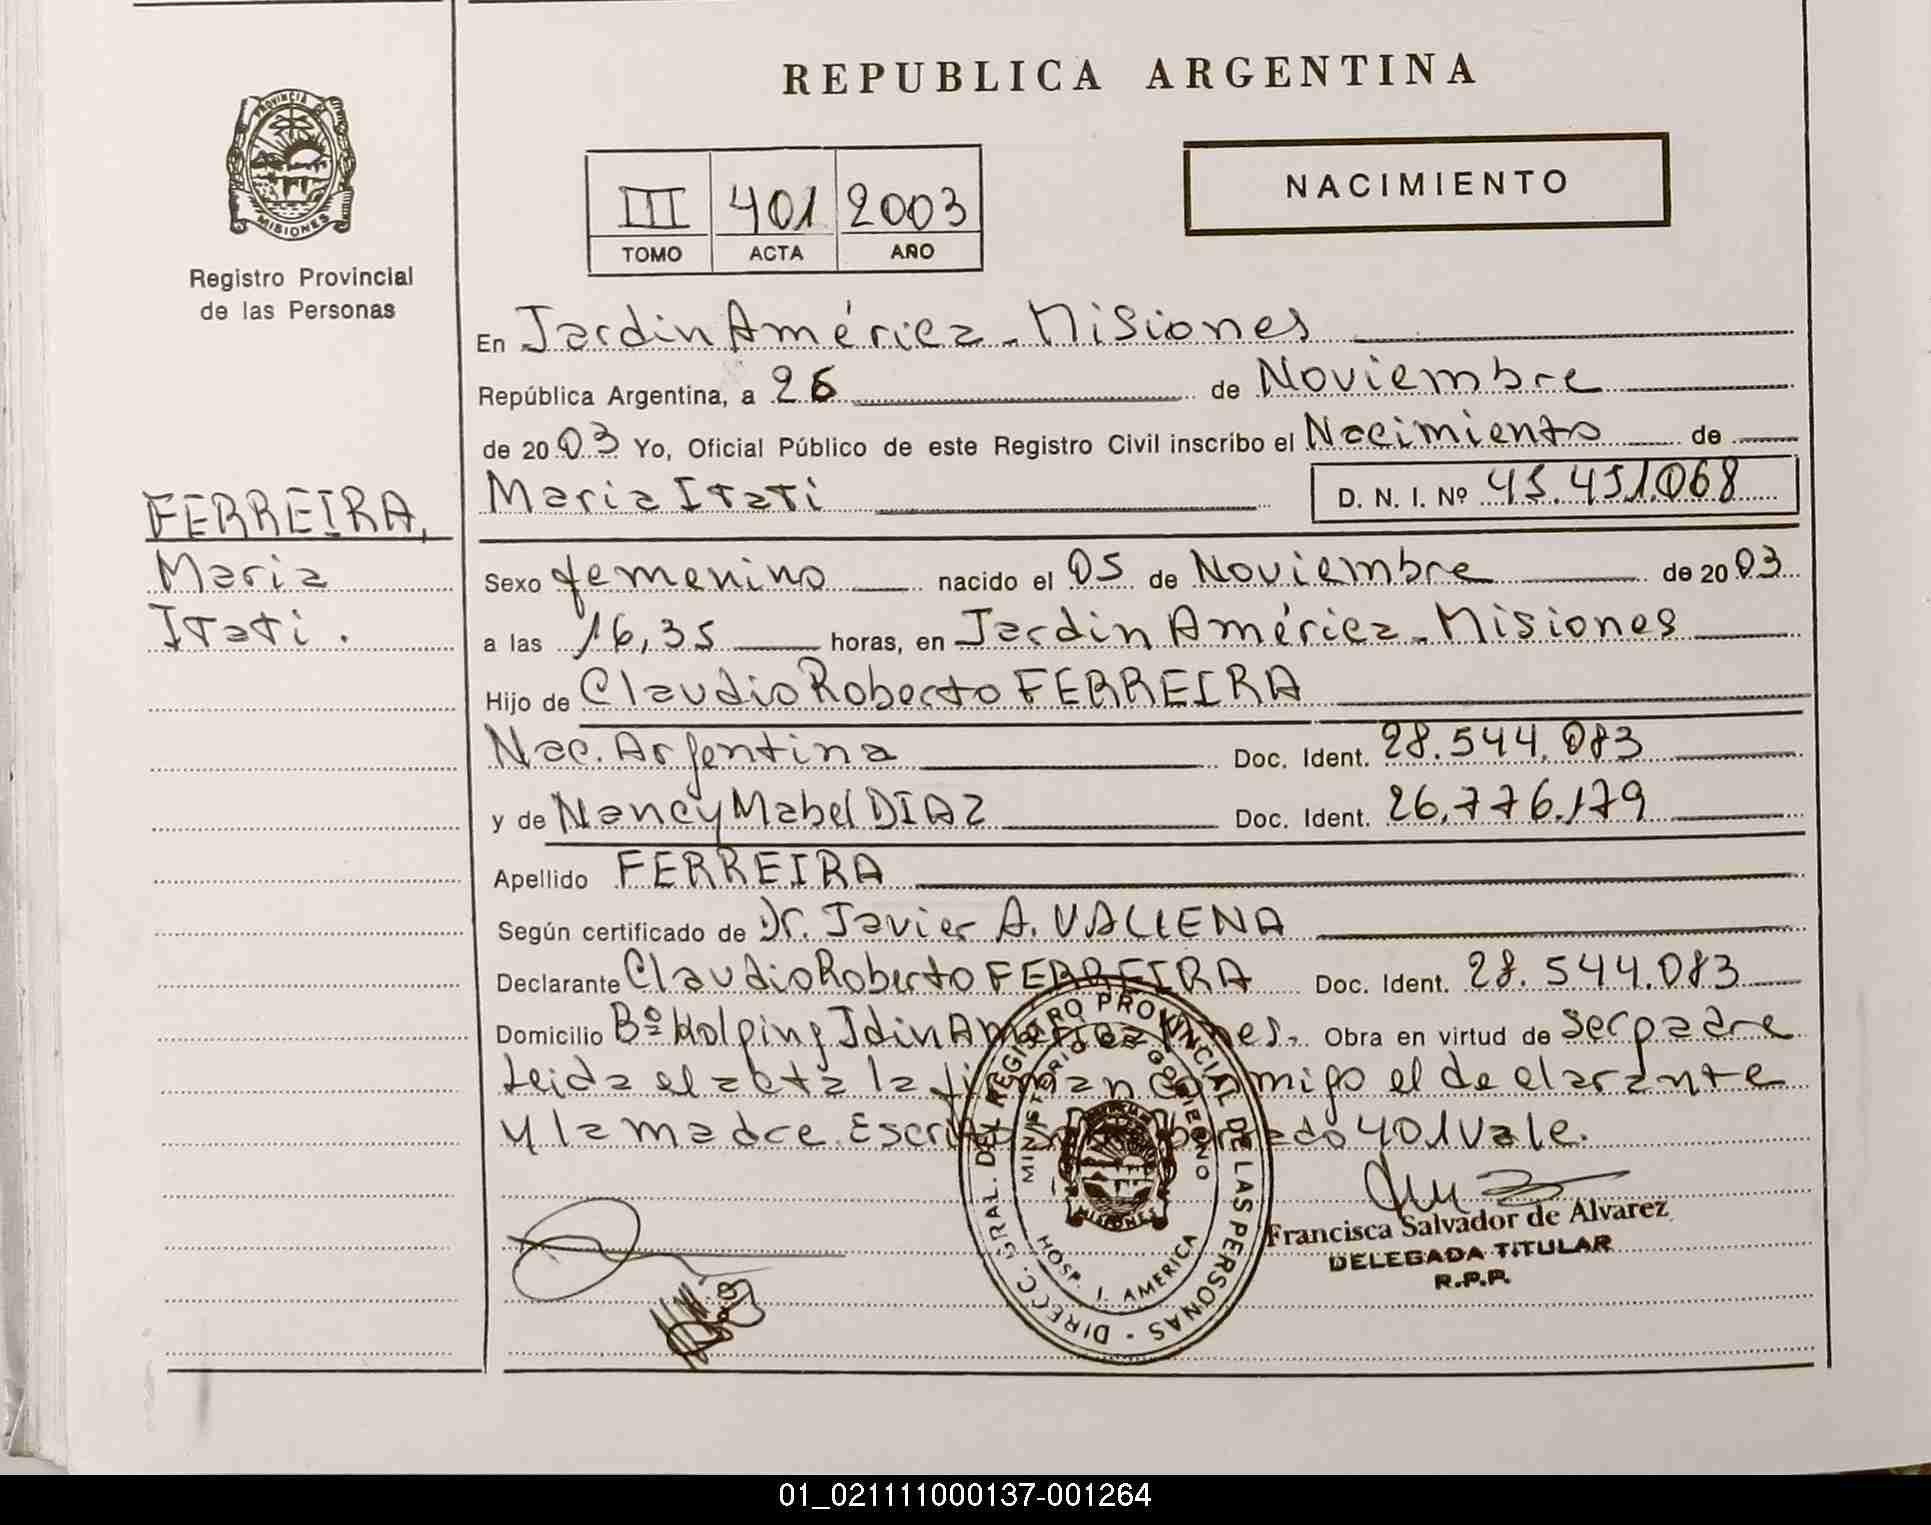 REPUBLICA ARGENTINA
PROVINCIA DE
MISIONES
Registro Provincial
de las Personas
III 401 2003
TOMO ACTA AÑO
NACIMIENTO
En Jardin América - Misiones
República Argentina, a 26 de Noviembre
de 2003 Yo, Oficial Público de este Registro Civil inscribo el Nacimiento de
FERREIRA,
Maria
Itati.
Maria Itati D. N. I. Nº 45.451.068
Sexo femenino nacido el 05 de Noviembre de 2003
a las 16,35 horas, en Jardin América - Misiones
Hijo de Claudio Roberto FERREIRA
Nac. Argentina Doc. Ident. 28.544.083
y de Nancy Mabel DIAZ Doc. Ident. 26.776.179
Apellido FERREIRA
Según certificado de Dr. Javier A.
Declarante Claudio Roberto FERREIRA Doc. Ident. 28.544.083
Domicilio Bº Kolping Jdin América Mnes. Obra en virtud de ser padre
leida el acta la firman conmigo el declarante
y la madre. Escrito sobre borrado 401 vale.
DIRECC. GRAL. DEL REGISTRO PROVINCIAL DE LAS PERSONAS
MINISTERIO DE GOBIERNO
MISIONES
HOSP. J. AMERICA
Francisca Salvador de Alvarez
DELEGADA TITULAR
R.P.P.
01_021111000137-001264